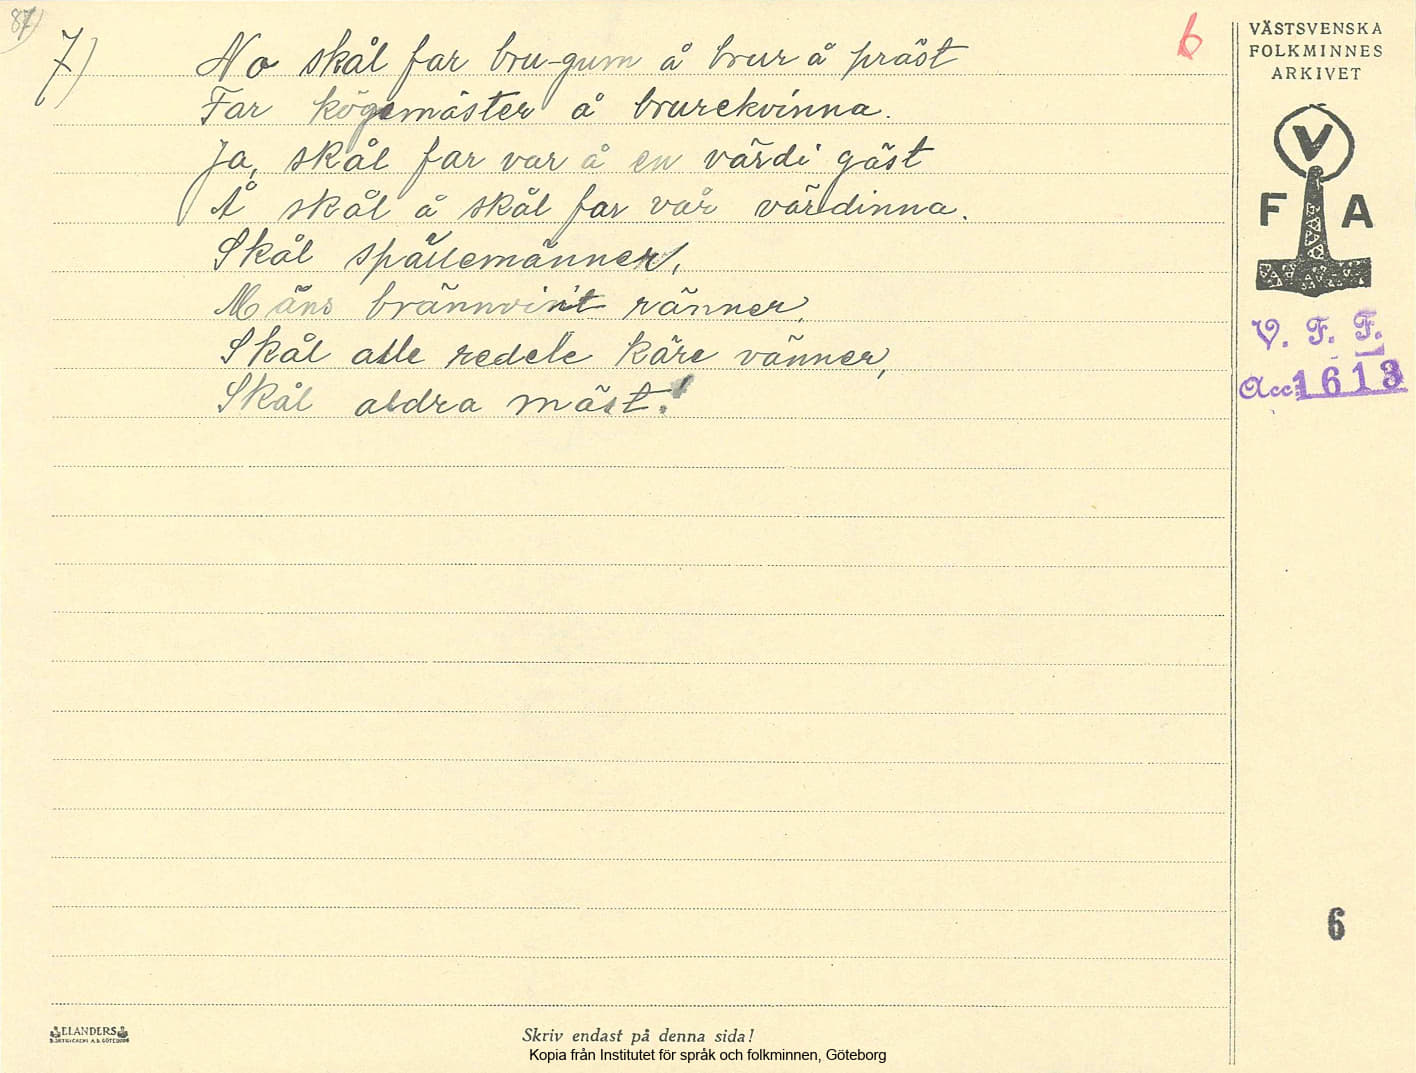 87)
7)
6
No skål far bru-gum å brur å präst
Far kögemäster å brurekvinna.
Ja, skål far var å en värdi gäst
Å skål å skål far vår värdinna.
Skål spällemänner,
Mäns brännvin't ränner,
Skål alle redele käre vänner,
Skål aldra mäst!
VÄSTSVENSKA
FOLKMINNES
ARKIVET
V
F A
V. F. F.
Acc. 1613
6
ELANDERS
Skriv endast på denna sida!
Kopia från Institutet för språk och folkminnen, Göteborg